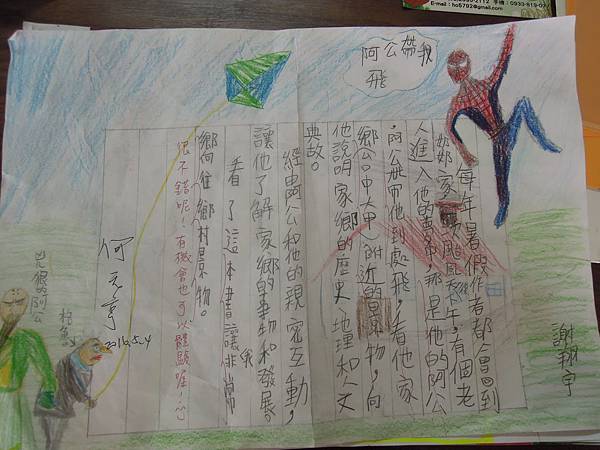 E-mail：ho6792@gmail.com
阿公帶我
飛
謝翔宇
每年暑假作者都會回到
奶奶家，一次颱風天下午，有個老
人進入他的夢中，那是他的阿公
，阿公帶他到處飛，看他家
鄉（台中大甲）附近的景物，向
他說明家鄉的歷史、地理和人文
典故。
經由阿公和他的親密互動，
讓他了解家鄉的事物和發展。
看了這本書讓我非常
嚮往鄉村景物。
很不錯呢！有機會也可以體驗喔！
何元亨
2016.5.4
阿公